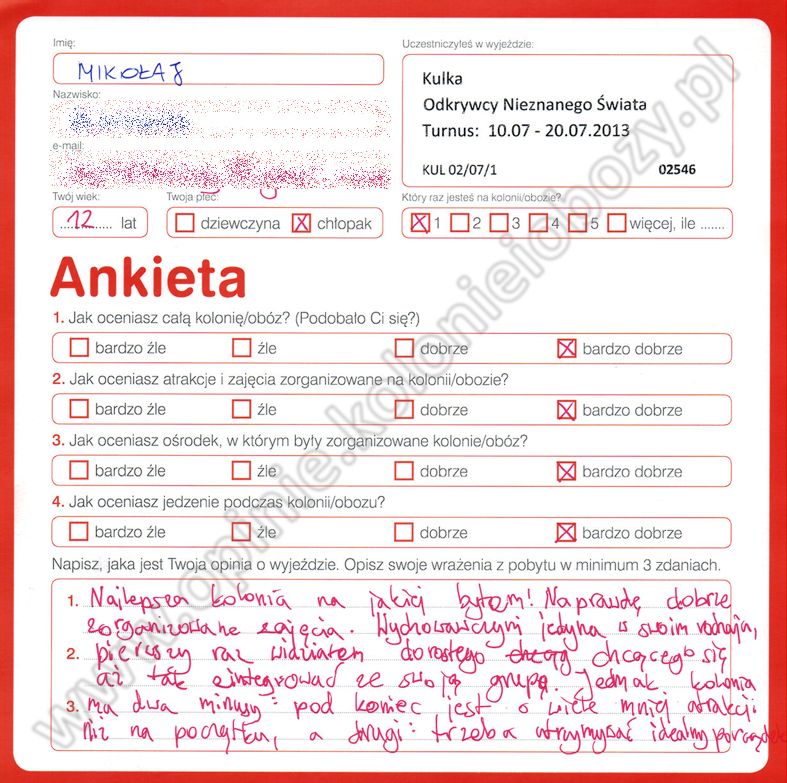 Imię:
MIKOŁAJ
Uczestniczyłeś w wyjeździe:
Kulka
Odkrywcy Nieznanego Świata
Turnus: 10.07 - 20.07.2013
KUL 02/07/1 02546
Nazwisko:
e-mail:
Twój wiek:
12 lat
Twoja płeć:
dziewczyna chłopak
Który raz jesteś na kolonii/obozie?
1 2 3 4 5 więcej, ile .......
Ankieta
1. Jak oceniasz całą kolonię/obóz? (Podobało Ci się?)
bardzo źle źle dobrze bardzo dobrze
2. Jak oceniasz atrakcje i zajęcia zorganizowane na kolonii/obozie?
bardzo źle źle dobrze bardzo dobrze
3. Jak oceniasz ośrodek, w którym były zorganizowane kolonie/obóz?
bardzo źle źle dobrze bardzo dobrze
4. Jak oceniasz jedzenie podczas kolonii/obozu?
bardzo źle źle dobrze bardzo dobrze
Napisz, jaka jest Twoja opinia o wyjeździe. Opisz swoje wrażenia z pobytu w minimum 3 zdaniach.
1. Najlepsza kolonia na jakiej byłem! Naprawdę dobrze
zorganizowane zajęcia. Wychowawczyni jedyna w swoim rodzaju,
2. pierwszy raz widziałem dorosłego chcącego się
aż tak zintegrować ze swoją grupą. Jednak kolonia
3. ma dwa minusy: pod koniec jest o wiele mniej atrakcji
niż na początku, a drugi: trzeba utrzymywać idealny porządek
www.opinie.kolonieiobozy.pl